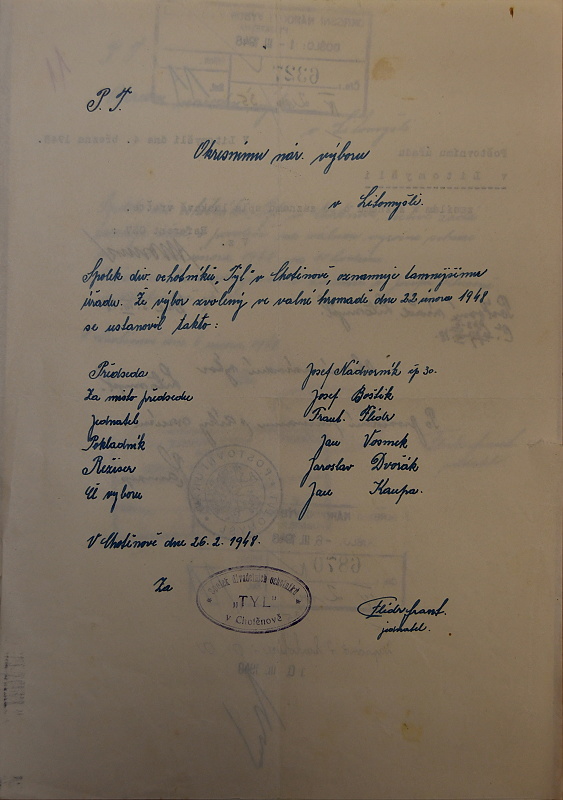 P. T.
Okresnímu nár. výboru
v Litomyšli.
Spolek div. ochotníků „Tyl" v Chotěnově, oznamuje tamnějšímu
úřadu. Že výbor zvolený ve valné hromadě dne 22 února 1948
se ustanovil takto:
Předseda Josef Nádvorník čp 30.
Za místo předsedu Josef Boštík
Jednatel Frant. Flídr
Pokladník Jan Vosmek
Režiser Jaroslav Dvořák
Čl výboru Jan Kaupa.
V Chotěnově dne 26. 2. 1948.
Za
divadelních ochotníků
„TYL"
v Chotěnově
Flídr Frant.
jednatel.